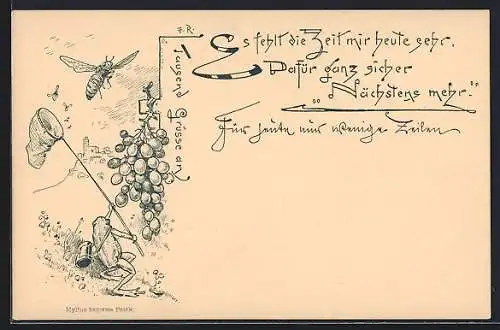 F.R.
Tausend Grüsse an
Es fehlt die Zeit mir heute sehr,
Dafür ganz sicher
„Nächstens mehr.“
Für heute nur wenige Zeilen